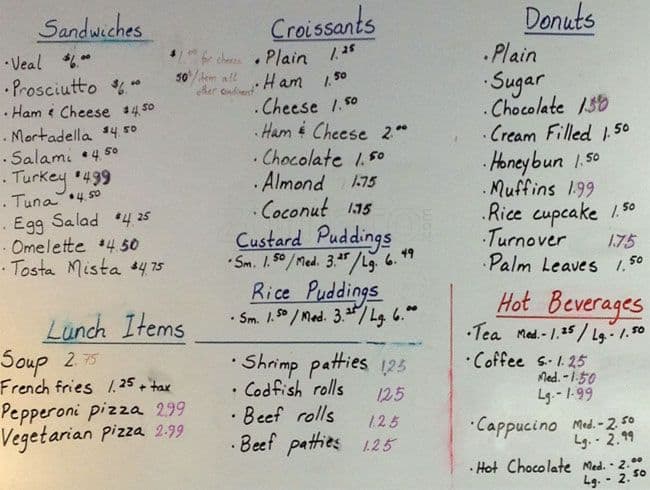 Sandwiches
· Veal $6.00
· Prosciutto $6.00
· Ham & Cheese $4.50
· Mortadella $4.50
· Salami $4.50
· Turkey $4.99
· Tuna $4.50
· Egg Salad $4.25
· Omelette $4.50
· Tosta Mista $4.75
$1.00 for cheese
50¢/item all
other condiment
Croissants
· Plain 1.25
· Ham 1.50
· Cheese 1.50
· Ham & Cheese 2.00
· Chocolate 1.50
· Almond 1.75
· Coconut 1.75
Custard Puddings
· Sm. 1.50/Med. 3.25/Lg. 6.49
Rice Puddings
· Sm. 1.50/Med. 3.25/Lg. 6.00
Donuts
· Plain
· Sugar
· Chocolate 1.50
· Cream Filled 1.50
· Honeybun 1.50
· Muffins 1.99
· Rice cupcake 1.50
· Turnover 1.75
· Palm Leaves 1.50
Lunch Items
Soup 2.75
French fries 1.25 + tax
Pepperoni pizza 2.99
Vegetarian pizza 2.99
· Shrimp patties 1.25
· Codfish rolls 1.25
· Beef rolls 1.25
· Beef patties 1.25
Hot Beverages
· Tea Med.-1.25/Lg.-1.50
· Coffee S-1.25
Med.-1.50
Lg.-1.99
· Cappucino Med.-2.50
Lg.-2.99
· Hot Chocolate Med.-2.00
Lg.-2.50